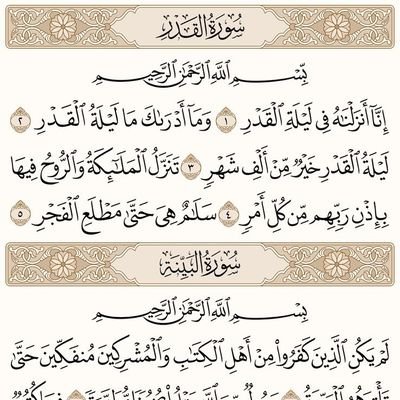 سُورَةُ الْقَدْرِ
بِسْمِ اللَّهِ الرَّحْمَٰنِ الرَّحِيمِ
إِنَّآ أَنزَلْنَٰهُ فِى لَيْلَةِ ٱلْقَدْرِ ١ وَمَآ أَدْرَىٰكَ مَا لَيْلَةُ ٱلْقَدْرِ ٢
لَيْلَةُ ٱلْقَدْرِ خَيْرٌ مِّنْ أَلْفِ شَهْرٍ ٣ تَنَزَّلُ ٱلْمَلَٰٓئِكَةُ وَٱلرُّوحُ فِيهَا
بِإِذْنِ رَبِّهِم مِّن كُلِّ أَمْرٍ ٤ سَلَٰمٌ هِىَ حَتَّىٰ مَطْلَعِ ٱلْفَجْرِ ٥
سُورَةُ الْبَيِّنَةِ
بِسْمِ اللَّهِ الرَّحْمَٰنِ الرَّحِيمِ
لَمْ يَكُنِ ٱلَّذِينَ كَفَرُوا۟ مِنْ أَهْلِ ٱلْكِتَٰبِ وَٱلْمُشْرِكِينَ مُنفَكِّينَ حَتَّىٰ